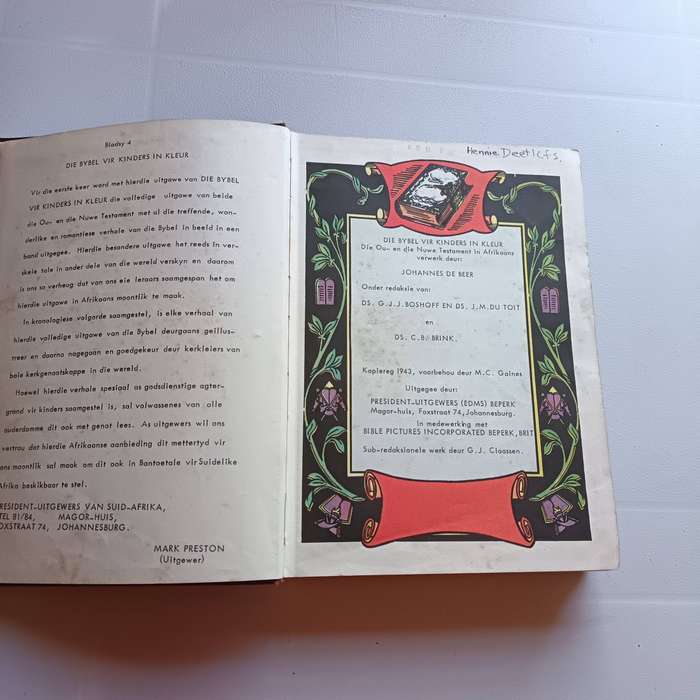 Bladsy 4
DIE BYBEL VIR KINDERS IN KLEUR
Vir die eerste keer word met hierdie uitgawe van DIE BYBEL
VIR KINDERS IN KLEUR die volledige uitgawe van beide
die Ou- en die Nuwe Testament met al die treffende, won-
derlike en romantiese verhale van die Bybel in beeld in een
band uitgegee. Hierdie besondere uitgawe het reeds in ver-
skeie tale in ander dele van die wereld verskyn en daarom
is ons so verheug dat van ons eie leraars saamgespan het om
hierdie uitgawe in Afrikaans moontlik te maak.
In kronologiese volgorde saamgestel, is elke verhaal van
hierdie volledige uitgawe van die Bybel deurgaans geillus-
treer en daarna nagegaan en goedgekeur deur kerkleiers van
baie kerkgenootskappe in die wereld.
Hoewel hierdie verhale spesiaal as godsdienstige agter-
grond vir kinders saamgestel is, sal volwassenes van alle
ouderdomme dit ook met genot lees. As uitgewers wil ons
vertrou dat hierdie Afrikaanse aanbieding dit mettertyd vir
ons moontlik sal maak om dit ook in Bantoetale vir Suidelike
Afrika beskikbaar te stel.
PRESIDENT-UITGEWERS VAN SUID-AFRIKA,
TEL 81/84, MAGOR-HUIS,
FOXSTRAAT 74, JOHANNESBURG.
MARK PRESTON
(Uitgewer)
Hennie Deetlefs.
DIE BYBEL VIR KINDERS IN KLEUR
Die Ou- en die Nuwe Testament in Afrikaans
verwerk deur:
JOHANNES DE BEER
Onder redaksie van:
DS. G.J.J.BOSHOFF EN DS. J.M.DU TOIT
en
DS. C.B. BRINK.
Kopiereg 1943, voorbehou deur M.C. Gaines
Uitgegee deur:
PRESIDENT-UITGEWERS (EDMS) BEPERK
Magor-huis, Foxstraat 74, Johannesburg.
In medewerking met
BIBLE PICTURES INCORPORATED BEPERK, BRIT
Sub-redaksionele werk deur G.J. Claassen.